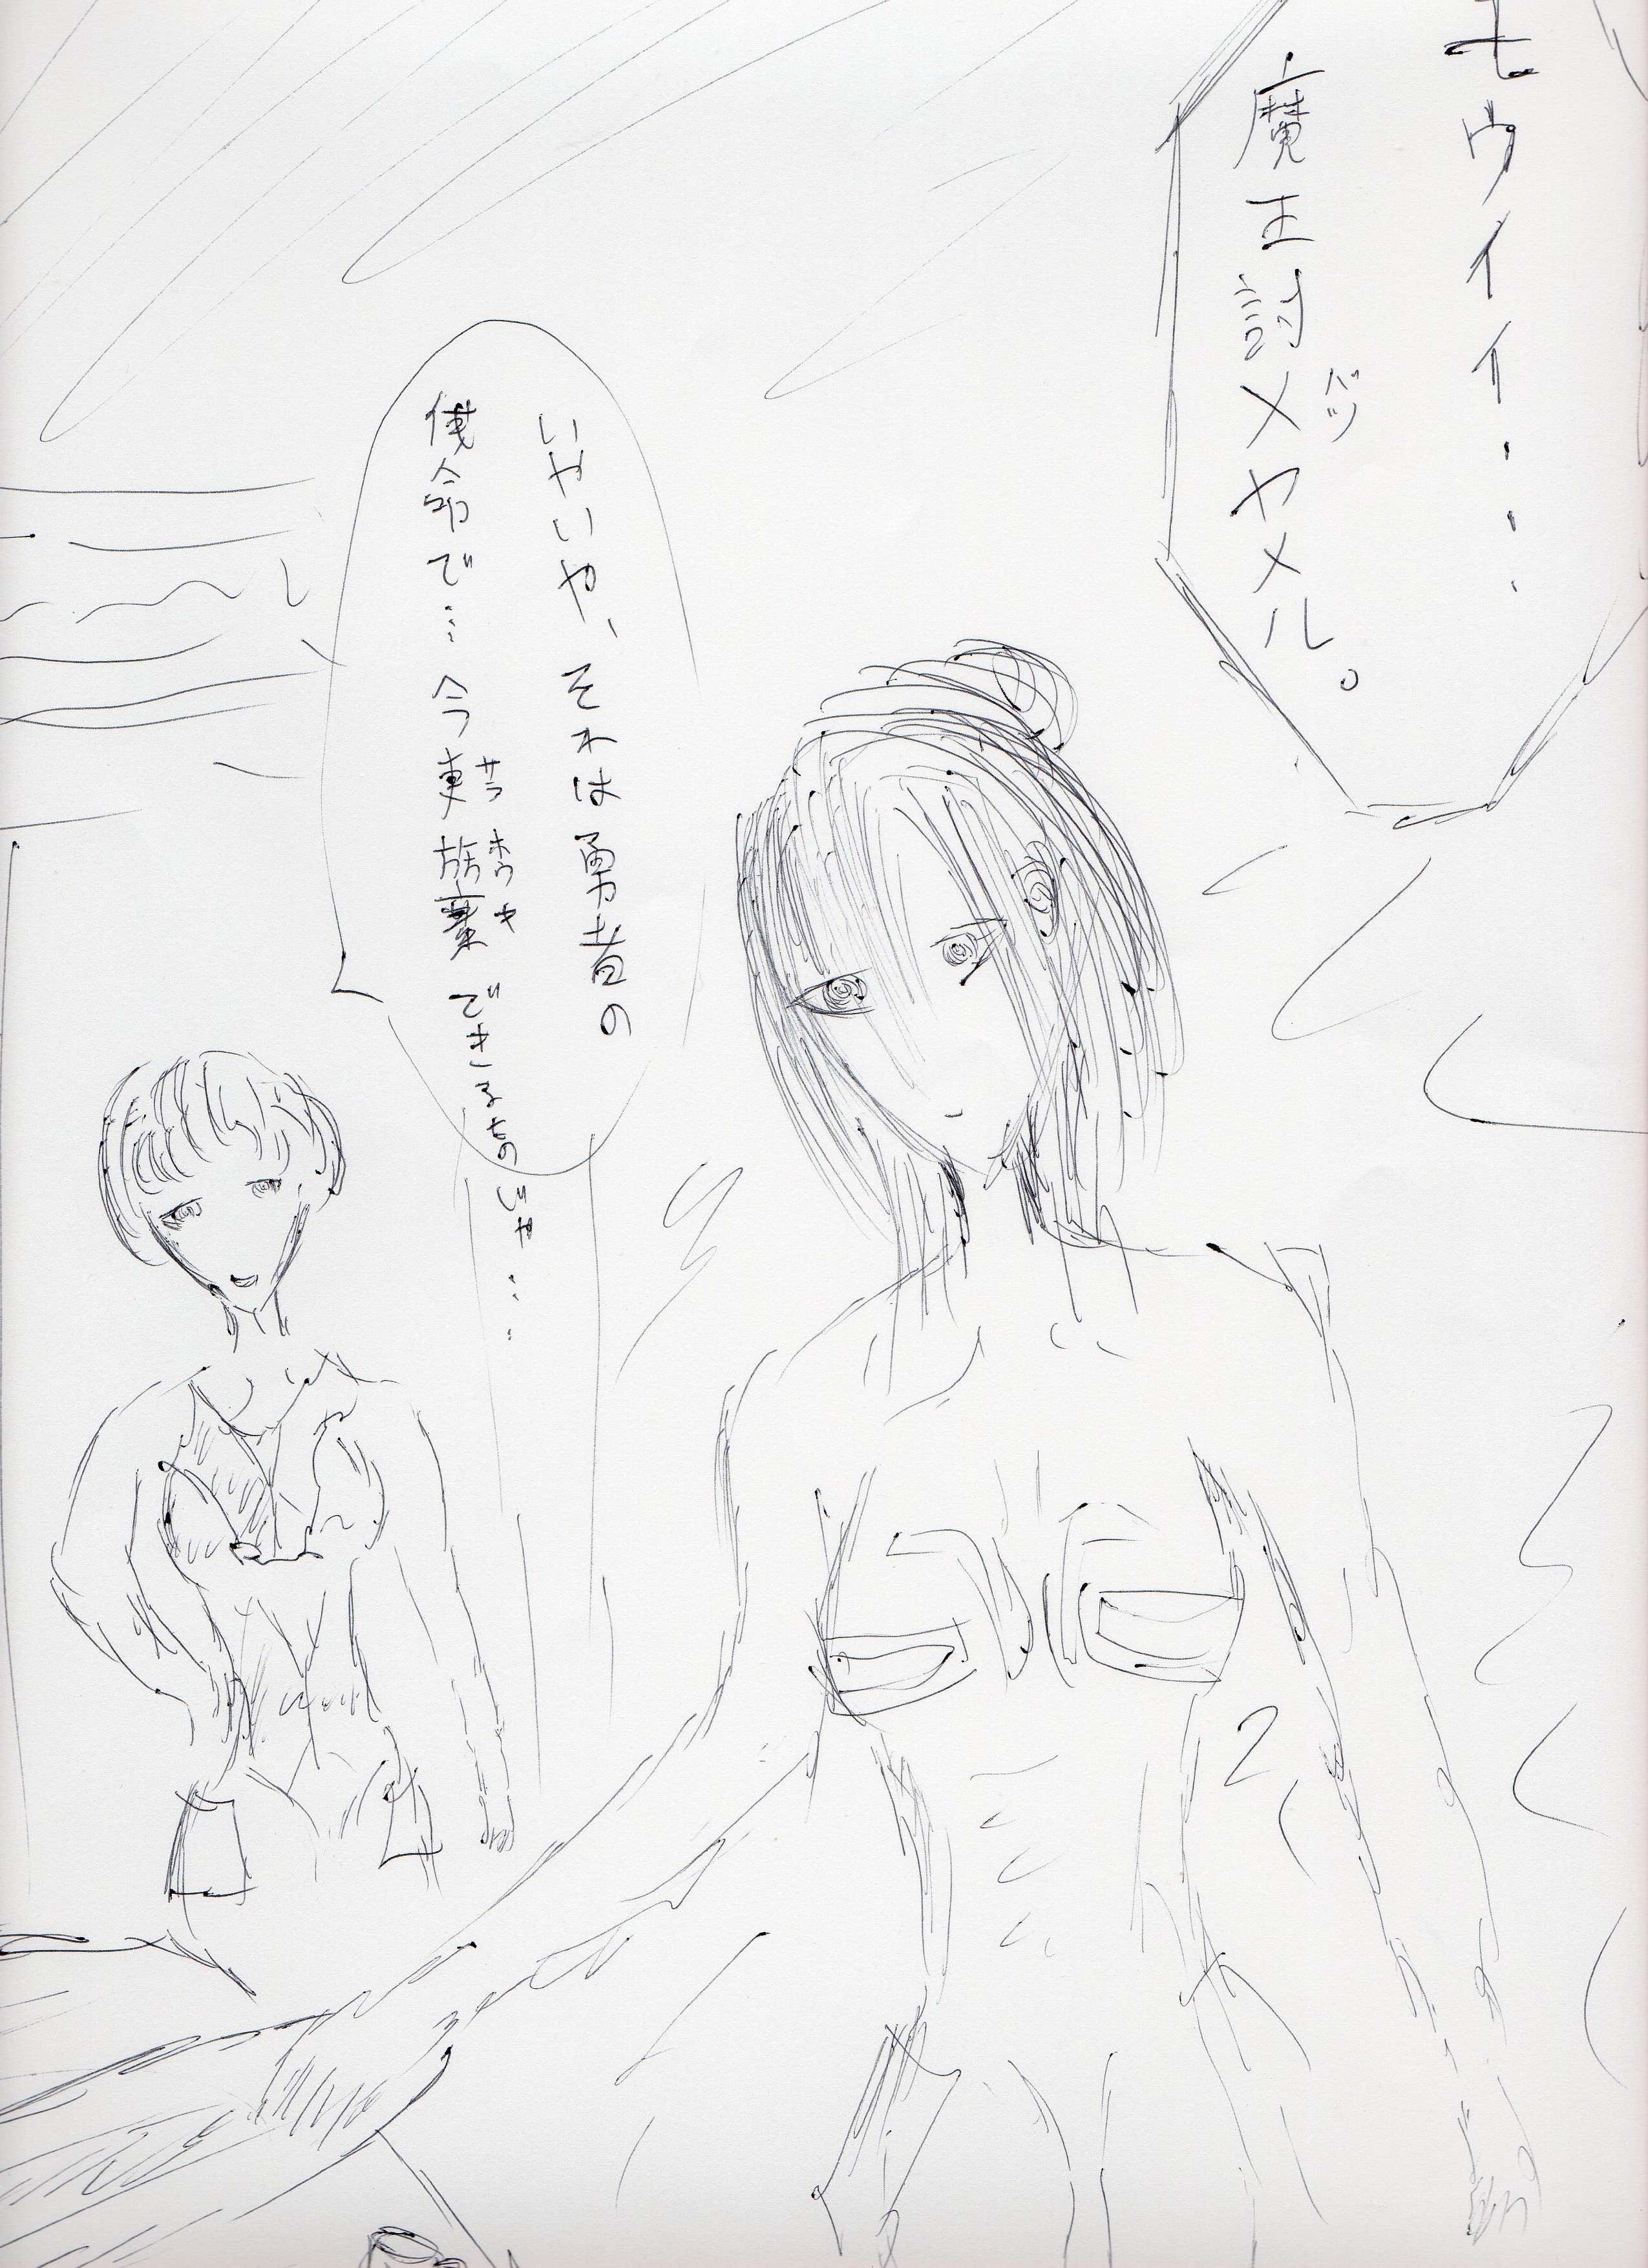 モウイイ・・・
魔王討バツヤメル。
いやいや、それは勇者の
使命で…今更放棄できるものじゃ…
サラ ホウキ